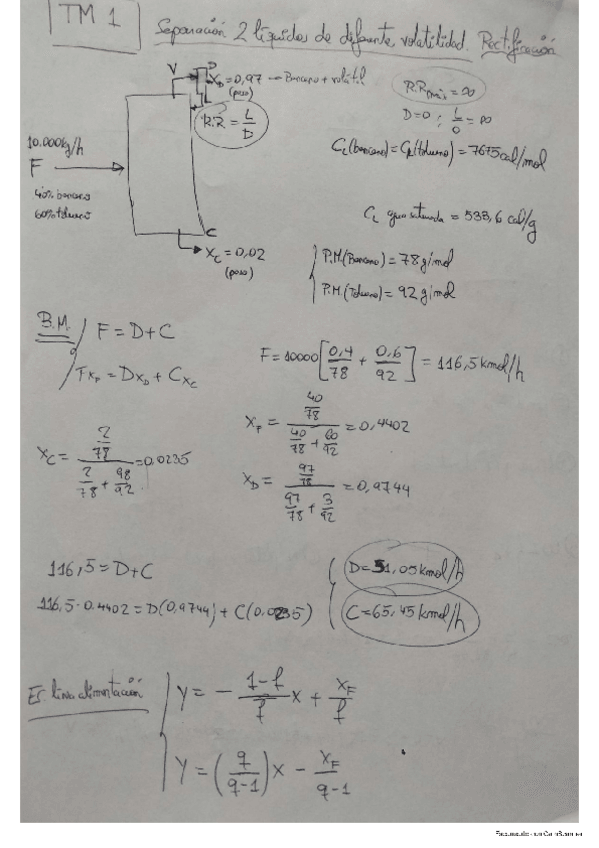 TM 1
Separación 2 líquidos de diferente volatilidad. Rectificación
V
D
X_D = 0,97 — Benceno + volátil
(peso)
L
R.R = L/D
R.R_mín = ∞
D=0 ; L/0 = ∞
10.000 kg/h
F
40% benceno
60% tolueno
C
X_C = 0,02
(peso)
C_L (benceno) = C_L (tolueno) = 7675 cal/mol
C_L agua saturada = 533,6 cal/g
P.M. (Benceno) = 78 g/mol
P.M. (Tolueno) = 92 g/mol
B.M.
F = D+C
Fx_F = Dx_D + Cx_C
F = 10000 [0,4/78 + 0,6/92] = 116,5 kmol/h
X_F = (40/78)/(40/78 + 60/92) = 0,4402
X_C = (2/78)/(2/78 + 98/92) = 0,0235
X_D = (97/78)/(97/78 + 3/92) = 0,9744
116,5 = D+C
116,5 · 0.4402 = D(0,9744) + C(0,0235)
D = 51,05 kmol/h
C = 65,45 kmol/h
Ec. línea alimentación
Y = - (1-f)/f x + X_F/f
Y = (q/(q-1)) x - X_F/(q-1)